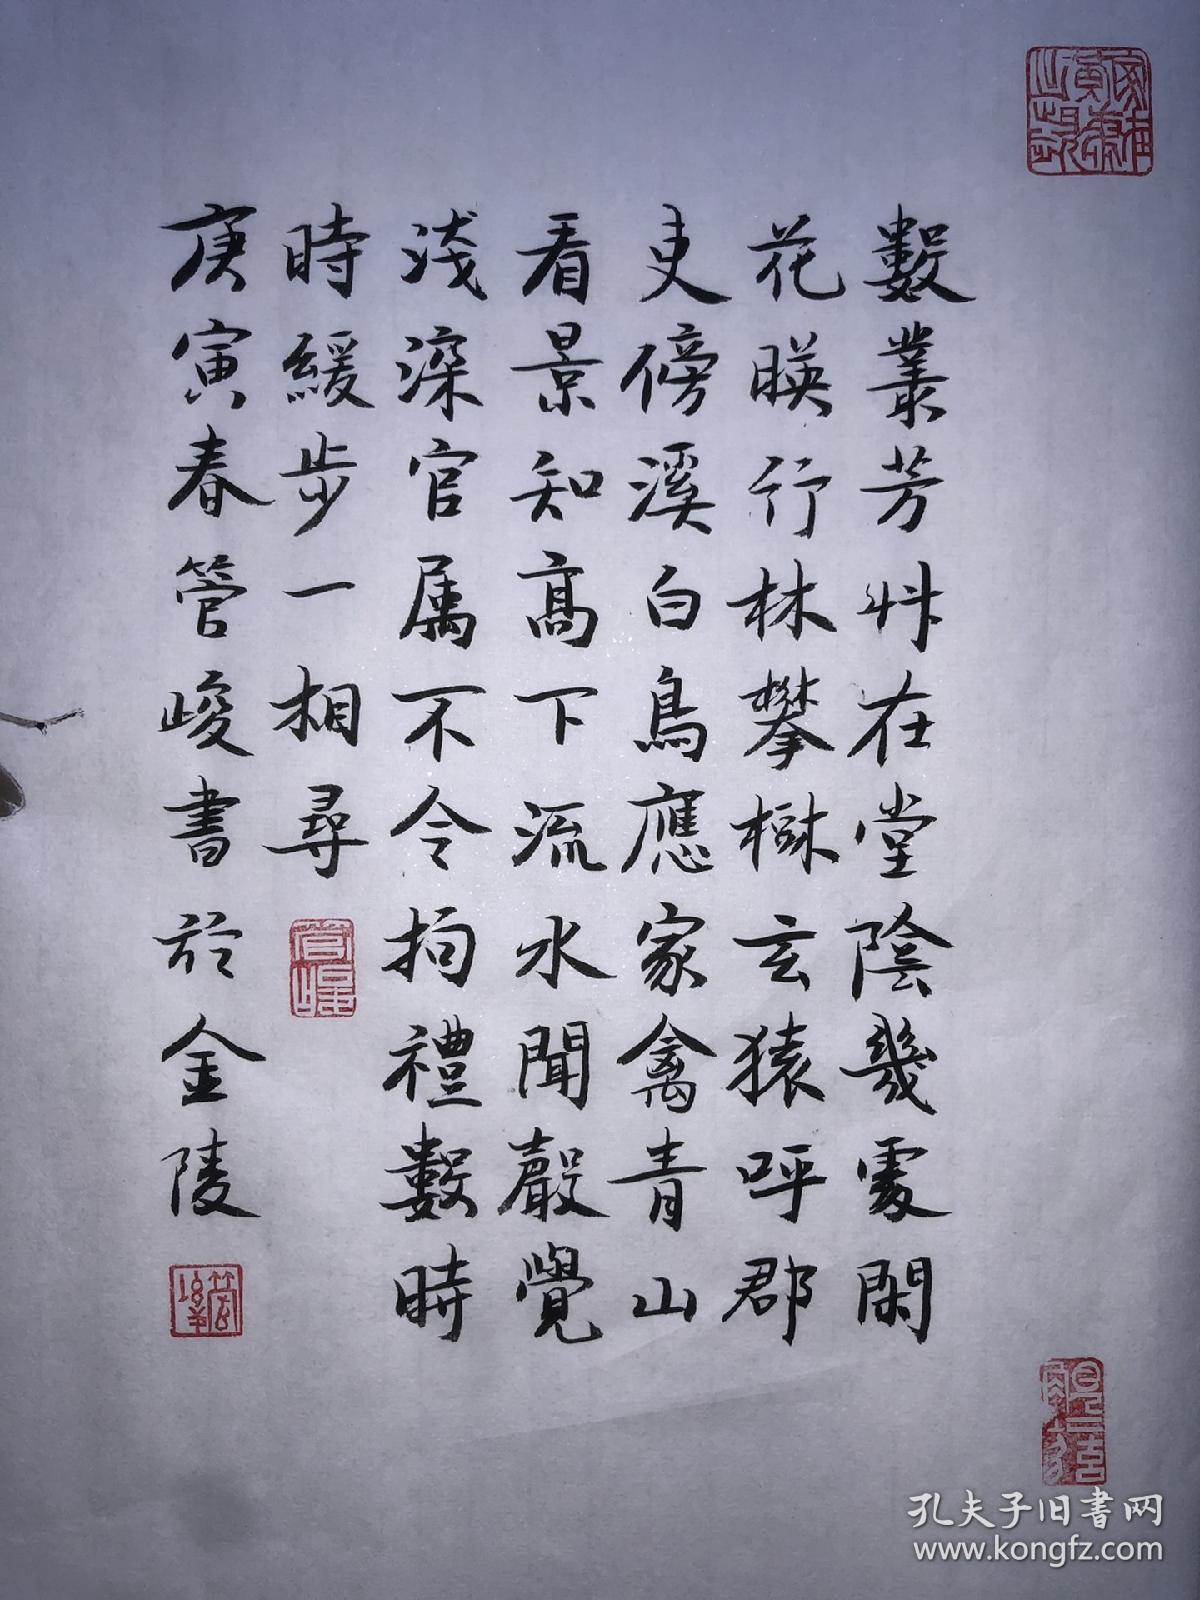 數叢芳艸在堂陰幾處閑
花暎行林攀樹玄猿呼郡
吏傍溪白鳥應家禽青山
看景知高下流水聞聲覺
浅深官属不令拘禮數時
時緩步一相尋
庚寅春管峻書於金陵
管峻
管峻
孔夫子旧书网
www.kongfz.com